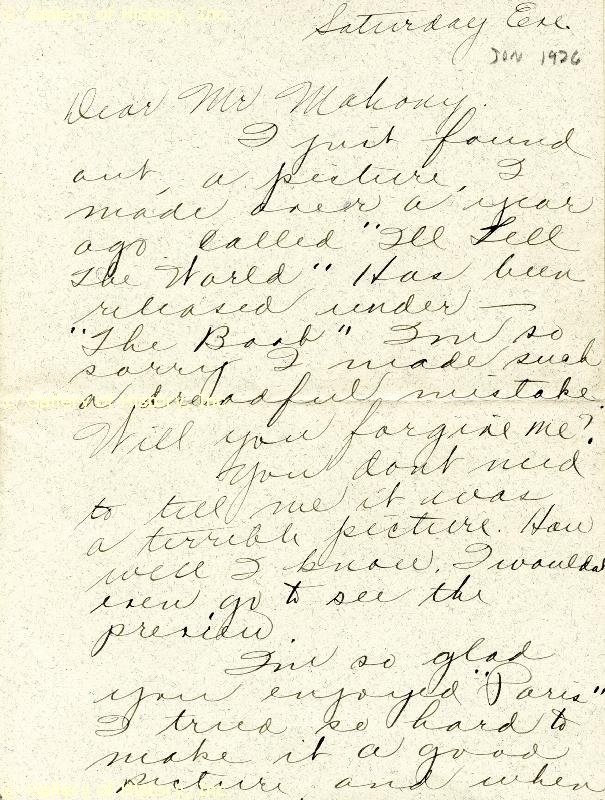 Gallery of History, Inc.
Saturday Eve.
JUN 1926
Dear Mr Mahony.
I just found
out, a picture, I
made over a year
ago called "Ill Tell
The World" Has been
released under —
"The Boob" Im so
sorry I made such
a dreadful mistake.
Will you forgive me?
You dont need
to tell me it was
a terrible picture. How
well I know. I wouldnt
even go to see the
preview
Im so glad
you enjoyed "Paris"
I tried so hard to
make it a good
picture, and when